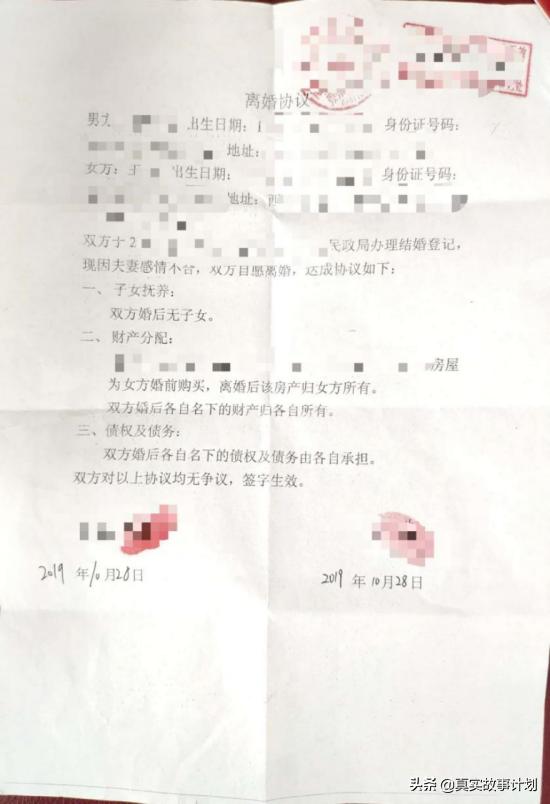 离婚协议
男方 出生日期： 身份证号码：
地址：
女方： 出生日期： 身份证号码：
地址：
双方于2 民政局办理结婚登记，
现因夫妻感情不合，双方自愿离婚，达成协议如下：
一、子女抚养：
双方婚后无子女。
二、财产分配：
房屋
为女方婚前购买，离婚后该房产归女方所有。
双方婚后各自名下的财产归各自所有。
三、债权及债务：
双方婚后各自名下的债权及债务由各自承担。
双方对以上协议均无争议，签字生效。
2019 年 10 月 28 日 2019 年 10 月 28 日
头条 @真实故事计划